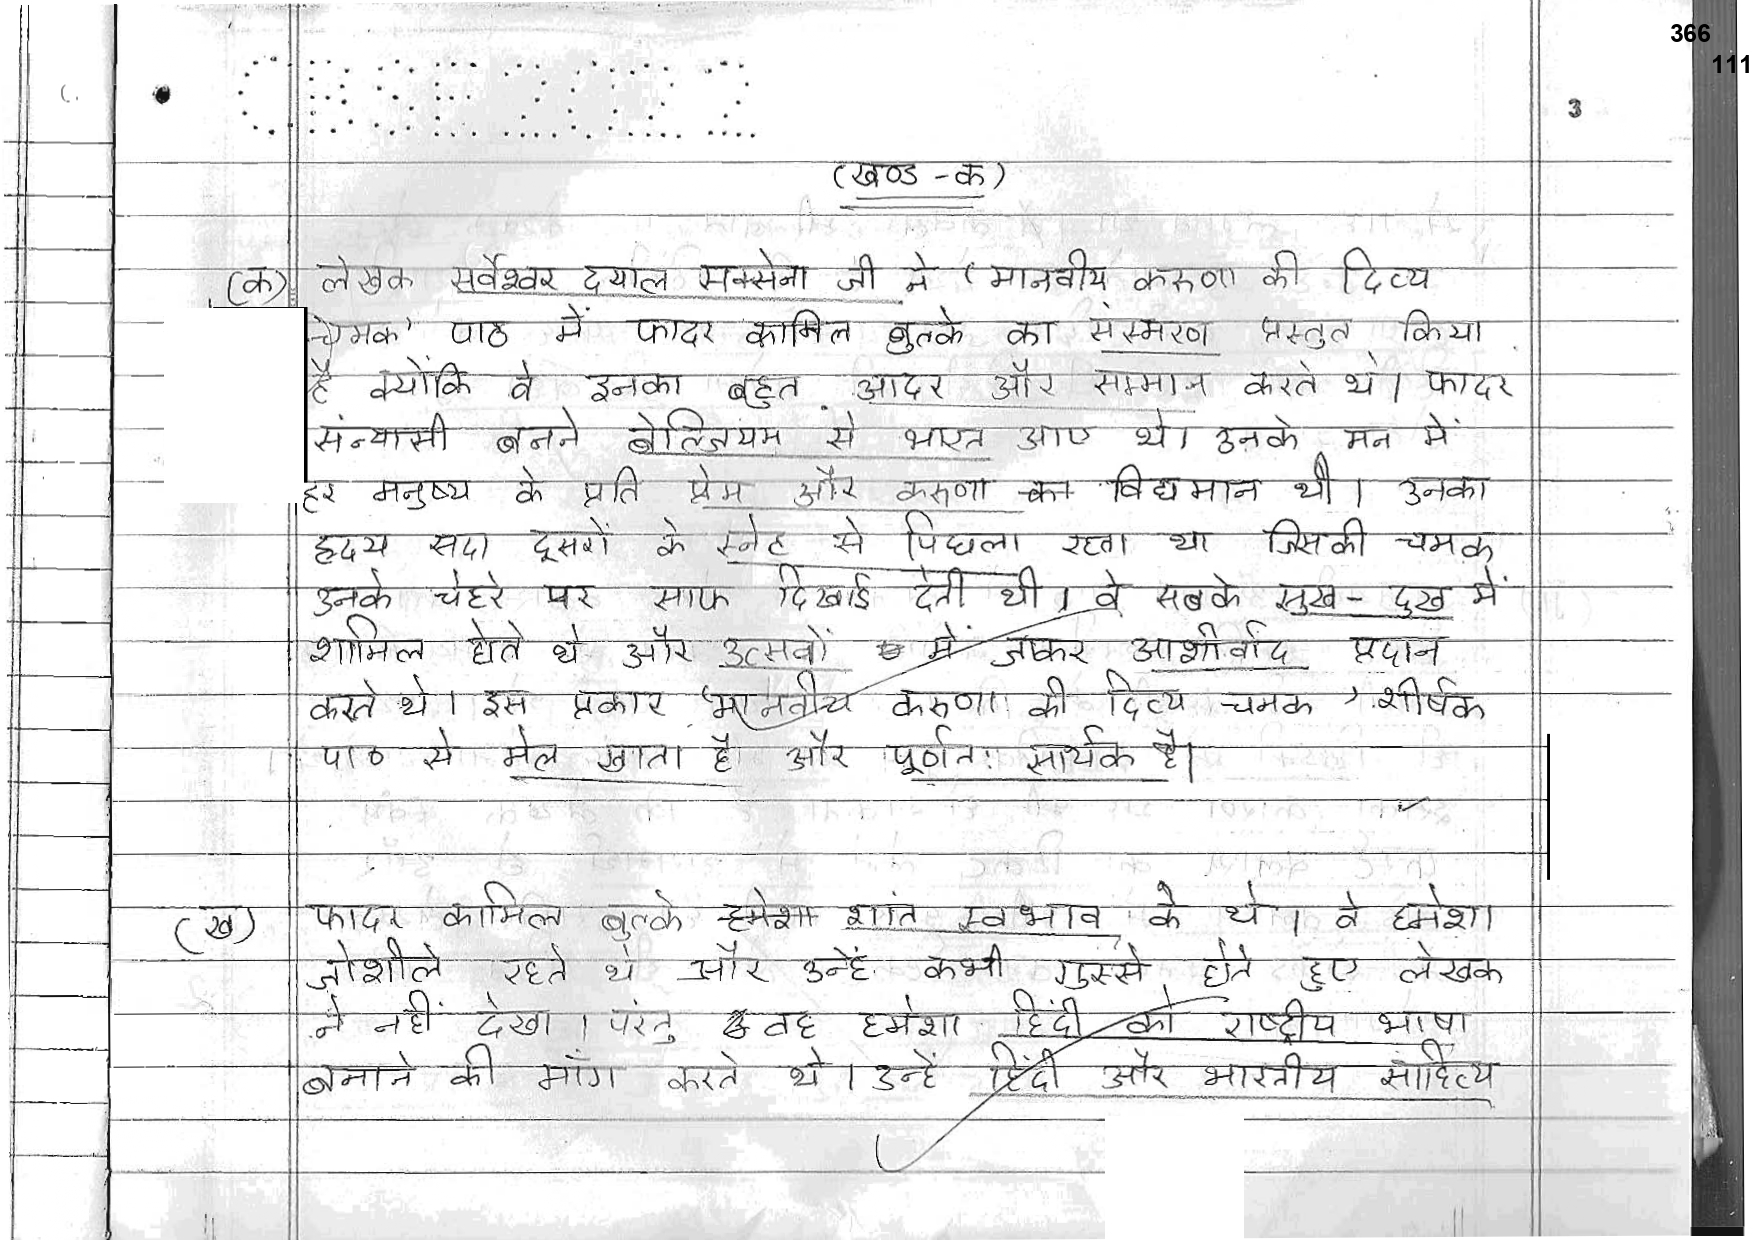 366
111
CBSE 2022
3
(खण्ड - क)
(क) लेखक सर्वेश्वर दयाल सक्सेना जी ने 'मानवीय करुणा की दिव्य
चमक' पाठ में फादर कामिल बुल्के का संस्मरण प्रस्तुत किया
है क्योंकि वे इनका बहुत आदर और सम्मान करते थे। फादर
संन्यासी बनने बेल्जियम से भारत आए थे। उनके मन में
हर मनुष्य के प्रति प्रेम और करुणा का विद्यमान थी। उनका
हृदय सदा दूसरों के स्नेह से पिघला रहता था जिसकी चमक
उनके चेहरे पर साफ दिखाई देती थी। वे सबके सुख - दुख में
शामिल होते थे और उत्सवों में जाकर आशीर्वाद प्रदान
करते थे। इस प्रकार 'मानवीय करुणा की दिव्य चमक' शीर्षक
पाठ से मेल खाता है और पूर्णतः सार्थक है।
(ख) फादर कामिल बुल्के हमेशा शांत स्वभाव के थे। वे हमेशा
जोशीले रहते थे और उन्हें कभी गुस्से होते हुए लेखक
ने नहीं देखा। परंतु वह हमेशा हिंदी को राष्ट्रीय भाषा
बनाने की माँग करते थे। उन्हें हिंदी और भारतीय साहित्य